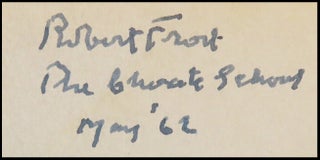 Robert Frost
The Choate School
May '62